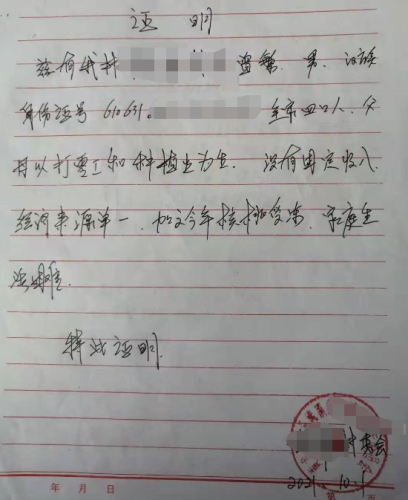 证 明
兹有我村 男、汉族
身份证号 610631. 全家四口人、父
母以打零工和种植业为生. 没有固定收入.
经济来源单一、加之今年核桃受冻、家庭生
活困难.
特此证明.
村委会
2021. 10. 1
年 月 日